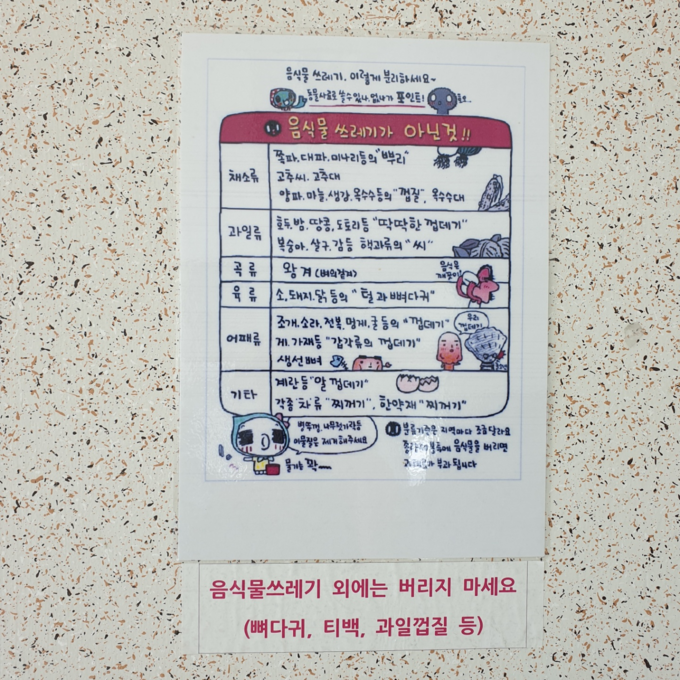 음식물 쓰레기, 이렇게 분리하세요~
동물사료로 쓸 수 있나, 없나가 포인트!
음식물 쓰레기가 아닌것!!
채소류
쪽파.대파.미나리등의 "뿌리"
고추씨. 고추대
양파.마늘.생강.옥수수등의 "껍질", 옥수수대
과일류
호두.밤. 땅콩.도토리등 "딱딱한 껍데기"
복숭아. 살구.감등 핵과류의 "씨"
곡류
왕겨 (벼의겉겨)
음식물
육류
소.돼지.닭등의 "털과 뼈다귀"
어패류
조개.소라.전복.멍게.굴등의 "껍데기"
게.가재등 "갑각류의 껍데기"
생선뼈
우린
껍데기
기타
계란등 "알 껍데기"
각종 차류 "찌꺼기", 한약재 "찌꺼기"
병뚜껑, 나무젓가락등
이물질은 제거해주세요
물기는 꽉
분류기준은 지역마다 조금 달라요
음식물을 버리면
부과됩니다
음식물쓰레기 외에는 버리지 마세요
(뼈다귀, 티백, 과일껍질 등)